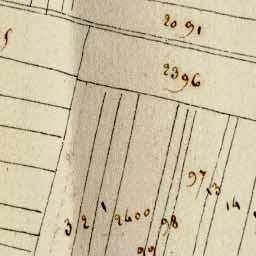 2091
2396
97
3 2 1 2600 98 13 14
99